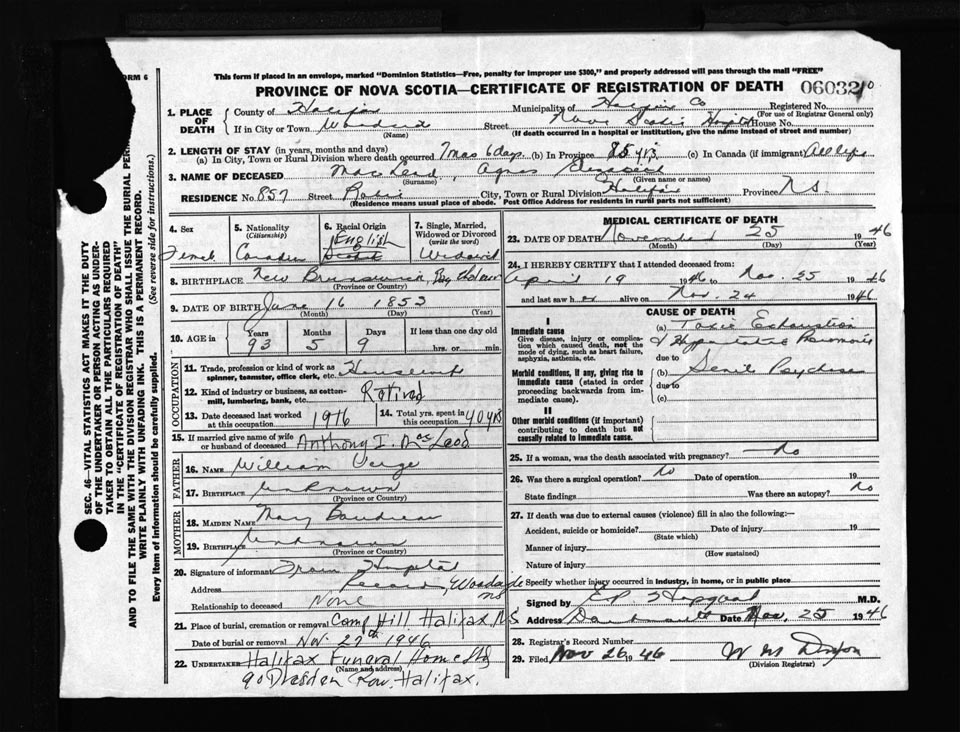 FORM 6
This form if placed in an envelope, marked "Dominion Statistics—Free, penalty for improper use $300," and properly addressed will pass through the mail "FREE"
PROVINCE OF NOVA SCOTIA—CERTIFICATE OF REGISTRATION OF DEATH
1. PLACE OF DEATH County of Halifax Municipality of Halifax Co Registered No.
(For use of Registrar General only)
If in City or Town Woodside Street Nova Scotia Hospital House No.
(Name) (If death occurred in a hospital or institution, give the name instead of street and number)
2. LENGTH OF STAY (in years, months and days)
(a) In City, Town or Rural Division where death occurred 7 mos 6 days (b) In Province 85 yrs. (c) In Canada (if immigrant) All life
3. NAME OF DECEASED MacLeod, Agnes
(Surname) (Given name or names)
RESIDENCE No. 857 Street Robie City, Town or Rural Division Halifax Province N.S.
(Residence means usual place of abode. Post Office Address for residents in rural parts not sufficient)
4. Sex Female
5. Nationality (Citizenship) Canadian
6. Racial Origin English
7. Single, Married, Widowed or Divorced (write the word) Widowed
8. BIRTHPLACE New Brunswick,
(Province or Country)
9. DATE OF BIRTH June 16 1853
(Month) (Day) (Year)
10. AGE in Years 93 Months 5 Days 9 If less than one day old
hrs. or min.
OCCUPATION
11. Trade, profession or kind of work as spinner, teamster, office clerk, etc. Housewife
12. Kind of industry or business, as cotton-mill, lumbering, bank, etc. Retired
13. Date deceased last worked at this occupation 1916 14. Total yrs. spent in this occupation 40 yrs
15. If married give name of wife or husband of deceased Anthony I. MacLeod
FATHER
16. Name William Verge
17. Birthplace Unknown
(Province or Country)
MOTHER
18. Maiden Name Mary Boudreau
19. Birthplace Unknown
(Province or Country)
20. Signature of informant From Hospital
Address Record, Woodside NS
Relationship to deceased None
21. Place of burial, cremation or removal Camp Hill Halifax, N S
Date of burial or removal Nov. 27th 1946
22. UNDERTAKER Halifax Funeral Home Ltd
(Name and address)
90 Dresden Row, Halifax.
MEDICAL CERTIFICATE OF DEATH
23. DATE OF DEATH November 25 1946
(Month) (Day) (Year)
24. I HEREBY CERTIFY that I attended deceased from:
April 19 1946 to Nov. 25 1946
and last saw her alive on Nov. 24 1946
CAUSE OF DEATH
I
Immediate cause
Give disease, injury or complication which caused death, not the mode of dying, such as heart failure, asphyxia, asthenia, etc.
(a) Toxic Exhaustion
& Hypostatic Pneumonia
due to
Morbid conditions, if any, giving rise to immediate cause (stated in order proceeding backwards from immediate cause).
(b) Senile Psychosis
due to
(c)
II
Other morbid conditions (if important) contributing to death but not causally related to immediate cause.
25. If a woman, was the death associated with pregnancy? No
26. Was there a surgical operation? No Date of operation 19
State findings Was there an autopsy? No
27. If death was due to external causes (violence) fill in also the following:—
Accident, suicide or homicide? Date of injury 19
(State which)
Manner of injury
(How sustained)
Nature of injury
Specify whether injury occurred in industry, in home, or in public place
Signed by M.D.
Address Dartmouth Date Nov. 25 1946
28. Registrar's Record Number
29. Filed Nov 26 1946 W M Dixon
(Division Registrar)
SEC. 46—VITAL STATISTICS ACT MAKES IT THE DUTY
OF THE UNDERTAKER OR PERSON ACTING AS UNDERTAKER
TO OBTAIN ALL THE PARTICULARS REQUIRED
IN THE "CERTIFICATE OF REGISTRATION OF DEATH"
AND TO FILE THE SAME WITH THE DIVISION REGISTRAR WHO SHALL ISSUE THE BURIAL
WRITE PLAINLY WITH UNFADING INK. THIS IS A PERMANENT RECORD.
Every item of information should be carefully supplied. (See reverse side for instructions.)